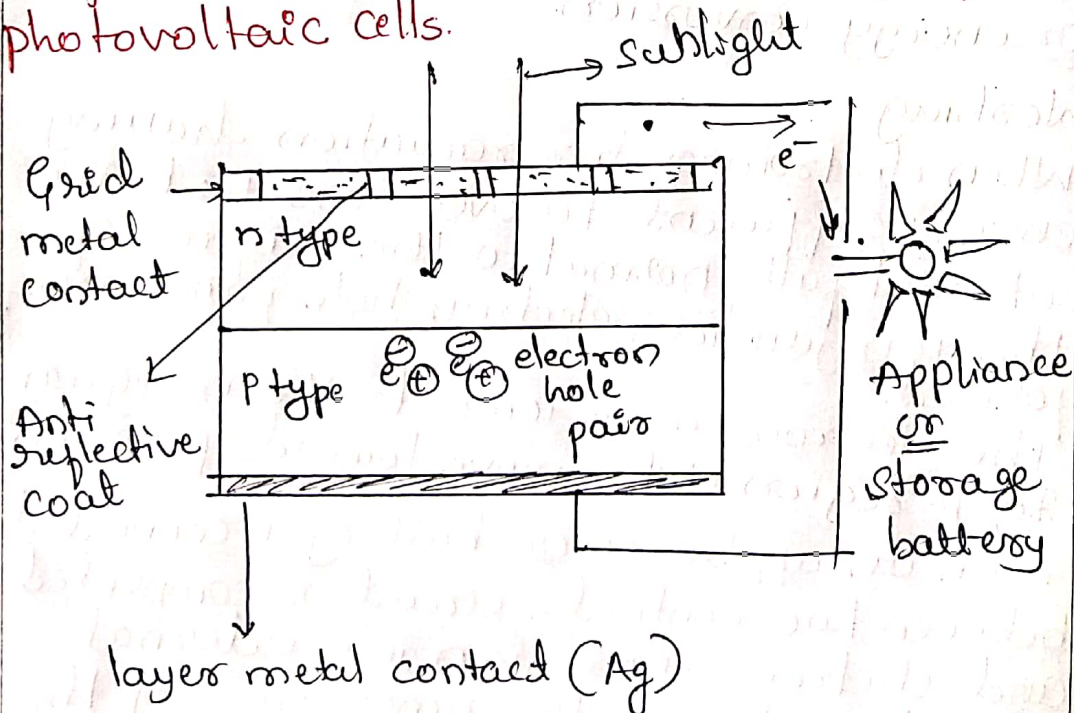 photovoltaic cells.
sublight
e⁻
Grid
metal
contact
n type
P type
e
-
+
e
-
+
electron
hole
pair
Anti
reflective
coat
Appliance
or
storage
battery
layer metal contact (Ag)